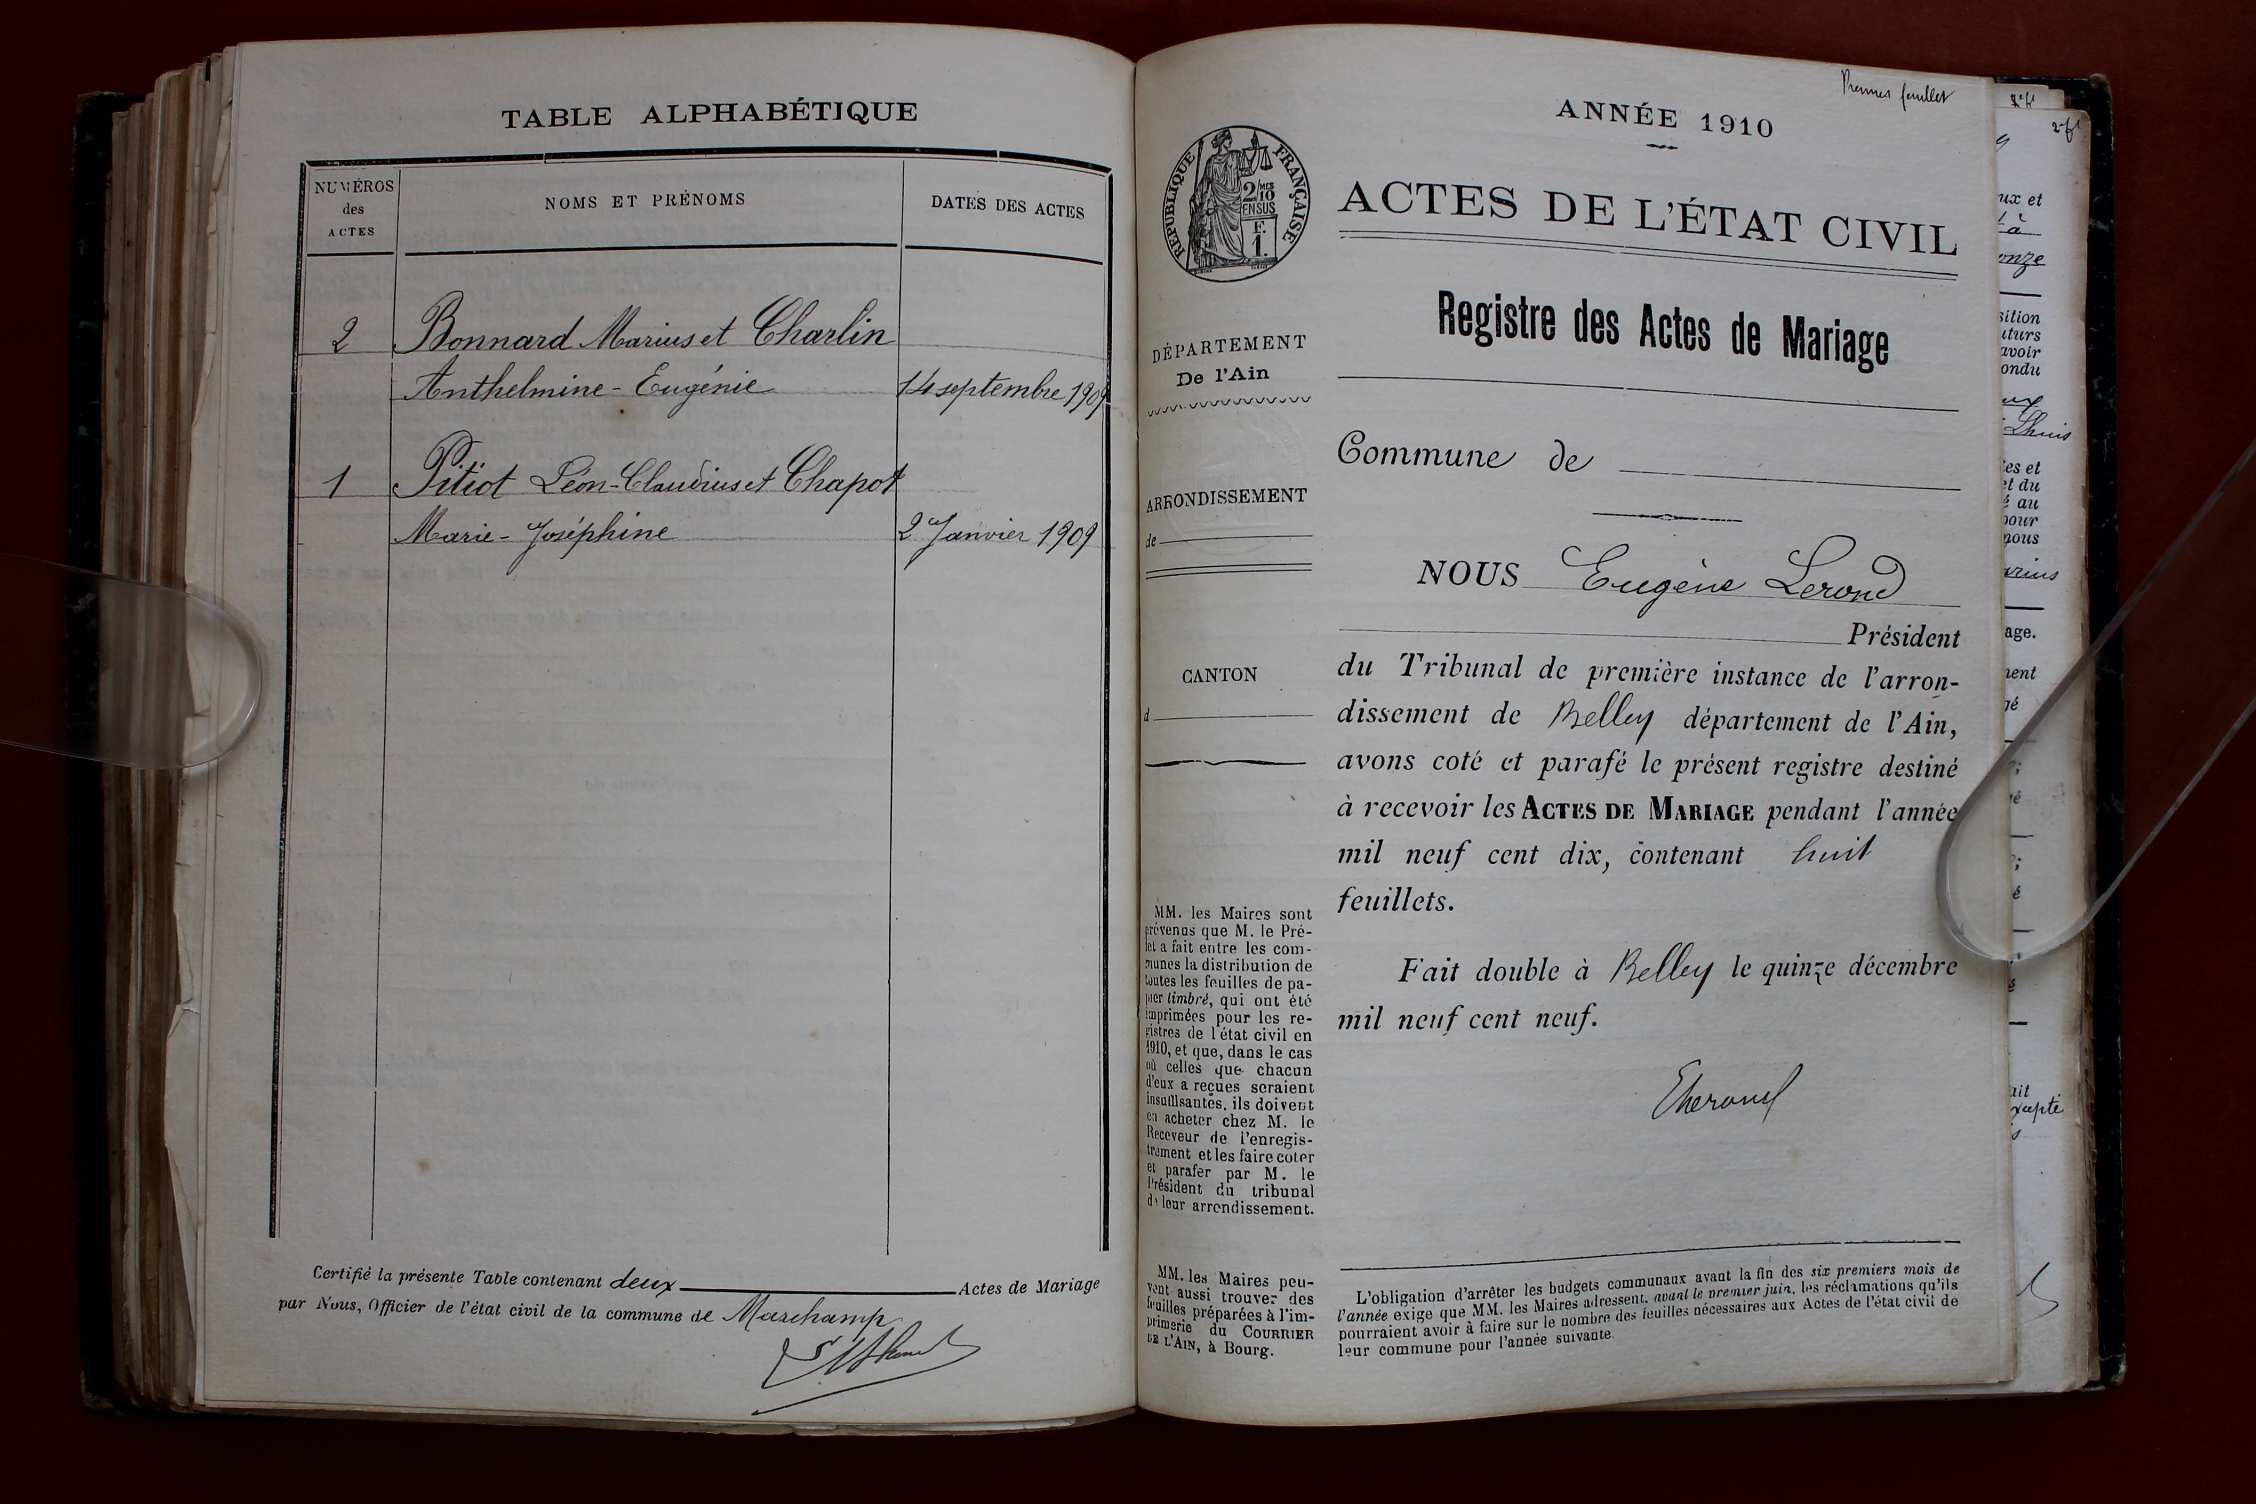 TABLE ALPHABÉTIQUE
NUMÉROS
des
ACTES
NOMS ET PRÉNOMS
DATES DES ACTES
2 Bonnard Marius et Charlin
Anthelmine-Eugénie 14 septembre 1909
1 Pitiot Léon-Claudius et Chapot
Marie-Joséphine 2 Janvier 1909
Certifié la présente Table contenant deux Actes de Mariage
par Nous, Officier de l'état civil de la commune de Marchamp
Premier feuillet
ANNÉE 1910
RÉPUBLIQUE FRANÇAISE
2/10 MES
EN SUS
F.
1.
ACTES DE L'ÉTAT CIVIL
Registre des Actes de Mariage
DÉPARTEMENT
De l'Ain
Commune de
ARRONDISSEMENT
de
NOUS Eugène Lerond
Président
CANTON
d
du Tribunal de première instance de l'arron-
dissement de Belley département de l'Ain,
avons coté et parafé le présent registre destiné
à recevoir les ACTES DE MARIAGE pendant l'année
mil neuf cent dix, contenant huit
feuillets.
Fait double à Belley le quinze décembre
mil neuf cent neuf.
ELerond
MM. les Maires sont
prévenus que M. le Pré-
fet a fait entre les com-
munes la distribution de
toutes les feuilles de pa-
pier timbré, qui ont été
imprimées pour les re-
gistres de l'état civil en
1910, et que, dans le cas
où celles que chacun
d'eux a reçues seraient
insuffisantes, ils doivent
en acheter chez M. le
Receveur de l'enregis-
trement et les faire coter
et parafer par M. le
Président du tribunal
de leur arrondissement.
MM. les Maires peu-
vent aussi trouver des
feuilles préparées à l'im-
primerie du COURRIER
DE L'AIN, à Bourg.
L'obligation d'arrêter les budgets communaux avant la fin des six premiers mois de
l'année exige que MM. les Maires adressent, avant le premier juin, les réclamations qu'ils
pourraient avoir à faire sur le nombre des feuilles nécessaires aux Actes de l'état civil de
leur commune pour l'année suivante.